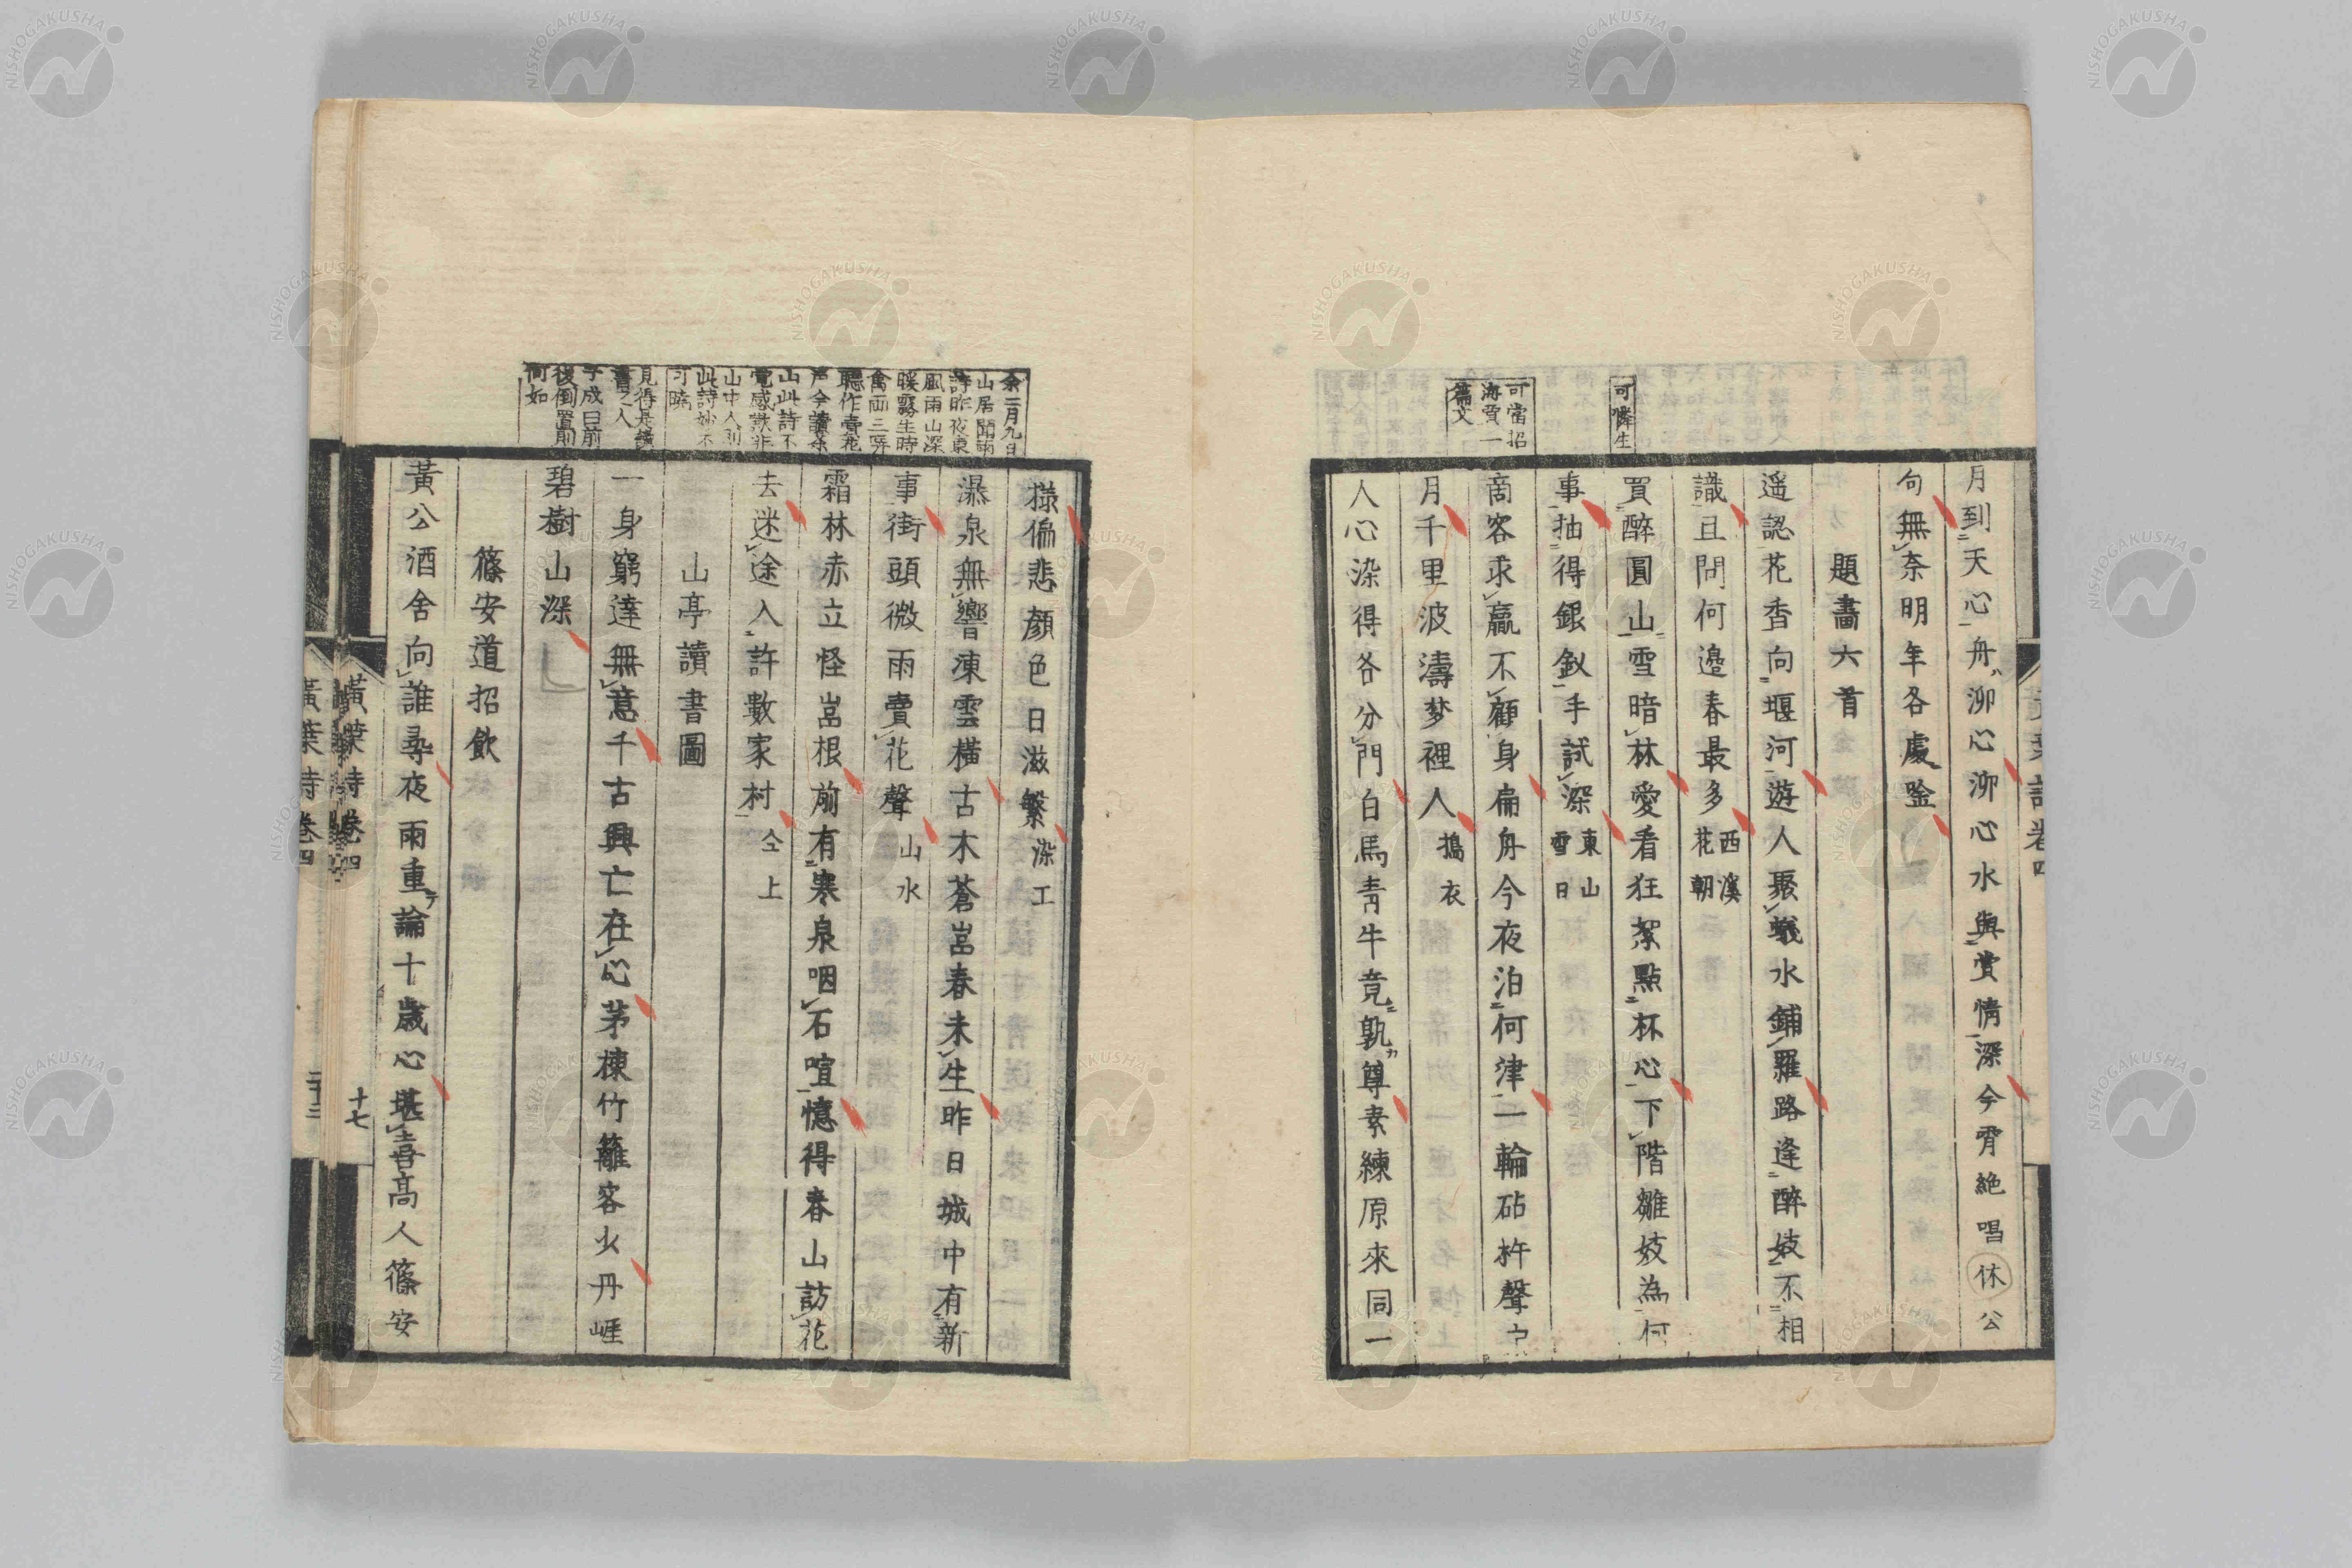 月到天心舟泖心泖心水與賞情深今宵絶唱休公
句無奈明年各處唫
題畵六首
遥認花香向堰河遊人聚蟻水鋪羅路逢醉妓不相
識且問何邊春最多西溪花朝
買醉圓山雪暗林愛看狂絮點杯心下階雛妓為何
事抽得銀釵手試深東山雪日
啇客求贏不顧身扁舟今夜泊何津一輪砧杵聲中
月千里波濤梦裡人搗衣
人心染得各分門白馬青牛竟孰尊素練原來同一
可憐生
可當招
海賈一
篇文
様偏悲顔色日滋繁染工
瀑泉無響凍雲橫古木蒼嵓春未生昨日城中有新
事街頭微雨賣花聲山水
霜林赤立怪嵓根前有寒泉咽石喧憶得春山訪花
去迷途入許數家村仝上
山亭讀書圖
一身窮達無意千古興亡在心茅棟竹籬客火丹崕
碧樹山深
篠安道招飲
黃公酒舍向誰尋夜雨重論十歲心堪喜高人篠安
余二月九日
山居聞雨
詩昨夜東
風雨山深
暖霧生時
禽両三哢
聽作賣花
声今讀余
山此詩不
覚感歎非
山中人則
此詩妙不
可暁
見得是讀
書之人
子成曰前
後倒置前
何如
黃葉詩卷四
十七
黃葉詩卷四
NISHOGAKUSHA